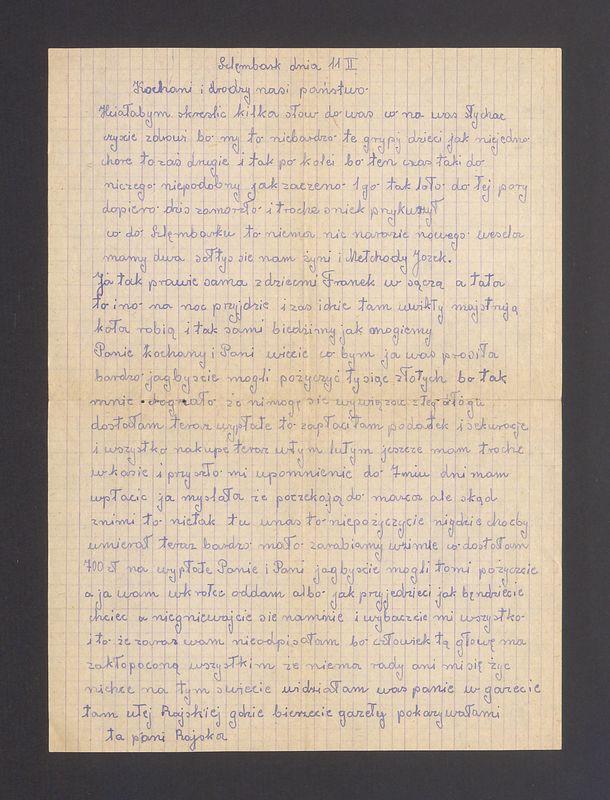 Szlembark dnia 11 II
Kochani i drodzy nasi państwo.
Hciałabym skreslic kilka słow do was co na was słychac
czyscie zdrowi bo my to niebardzo te grypy dzieci jak niejedno
chore to zas drugie i tak po kolei bo ten czas taki do
niczego niepodobny jak zaczeno 1go tak loło do tej pory
dopiero dzis zamarzło i troche sniek przykurzył
co do Szlembarku to niema nic narazie nowego wesela
mamy dwa sołtys sie nam żyni i Metchody Jozek.
Ja tak prawie sama z dziecmi Franek w sączą a tata
to ino na noc przyjdzie i zas idzie tam uwikty majstrują
koła robią i tak sami biedzimy jak mogiemy
Panie Kochany i Pani wiecie co bym ja was prosiła
bardzo jagbyscie mogli pożyczyć tysiąc złotych bo tak
mnie że nimogę sie wywiązac z tego długu
dostołam teraz wypłate to zapłaciłam podatek i sekuracje
i wszystko nakupe teraz wtym lutym jeszcze mam troche
wkasie i przyszło mi upomnienie do 7miu dni mam
wpłacic ja myslała ze poczekają do marca ale skąd
znimi to nietak tu unas to niepożyczycie nigdzie chocby
umierał teraz bardzo mało zarabiamy wzimie co dostołam
700 zł na wypłate Panie i Pani jagbyscie mogli tomi pożyczcie
a ja wam wkrotce oddam albo jak przyjedzieci jak bęndziecie
chciec a niegniewajcie sie namnie i wybaczcie mi wszystko
i to że zaraz wam nieodpisałam bo człowiek tą głowę ma
zakłopoconą wszystkim ze niema rady ani mi się życ
nichce na tym swjecie widziałam was panie w gazecie
tam utej Rajskiej gdzie bierzecie gazety pokazywałami
ta pani Rajska